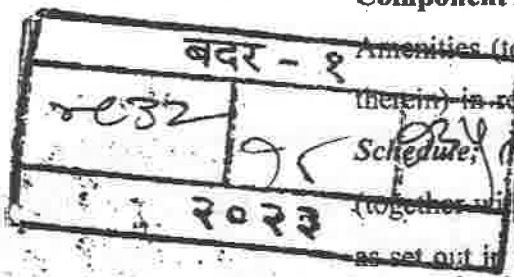 Component
बदर - १
Amenities (to
therein) in re
Schedule; (
२०२३
(together wi
as set out in